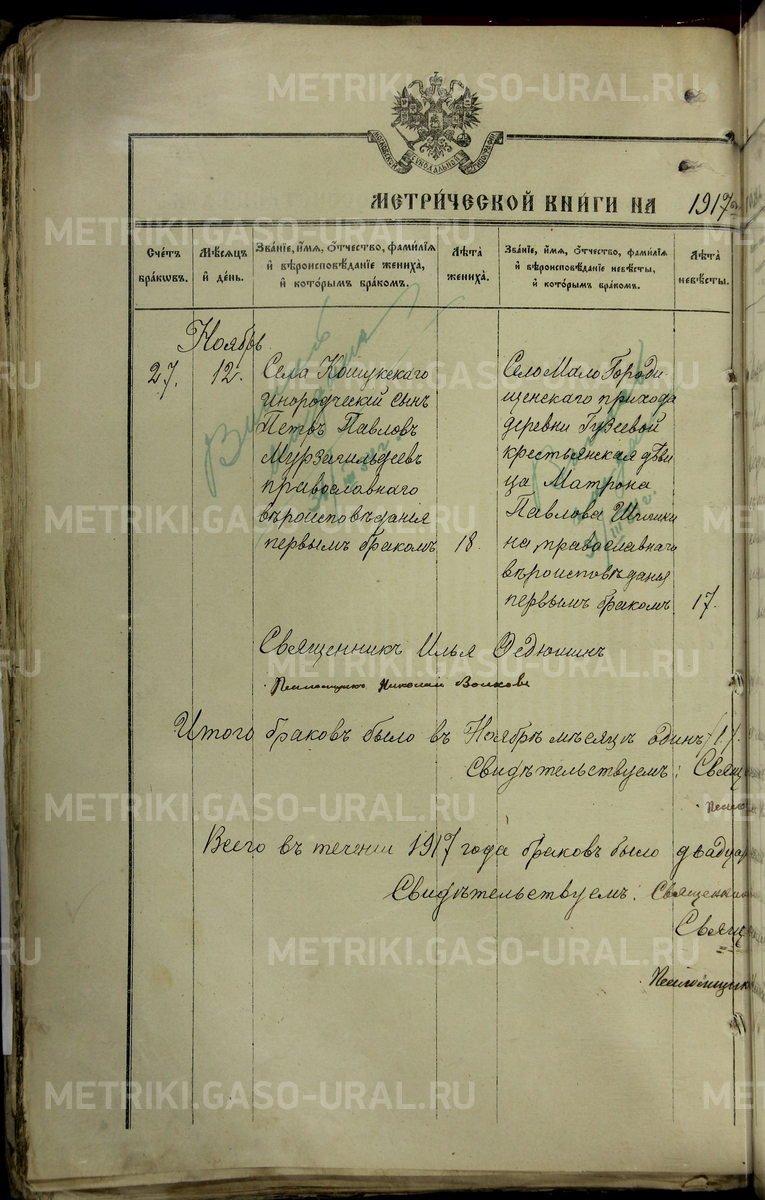 METRIKI.GASO-URAL.RU
МОСКОВСКОЙ СѴНОДАЛЬНОЙ ТИПОГРАФІИ
МЕТРИ́ЧЕСКОЙ КНИ́ГИ НА 1917
Сче́тъ бра́кωвъ.
Мѣ́сяцъ и҆ де́нь.
Зва́нїе, и҆́мѧ, ѻ҆́тчество, фами́лїѧ и҆ вѣроисповѣ́данїе жениха̀, и҆ кото́рымъ бра́комъ.
Лѣ́та жениха̀.
Зва́нїе, и҆́мѧ, ѻ҆́тчество, фами́лїѧ и҆ вѣроисповѣ́данїе невѣ́сты, и҆ кото́рымъ бра́комъ.
Лѣ́та невѣ́сты.
Ноябрь
27. 12.
Села Кошукскаго
инородческій сынъ
Петръ Павловъ
Мурзагильдеевъ
православнаго
вѣроисповѣданія
первымъ бракомъ 18.
Село Мало Городи
щенскаго прихода
деревни Гузеевой
крестьянская дѣви
ца Матрона
Павлова
на православнаго
вѣроисповѣданья
первымъ бракомъ 17.
Священникъ Илья Федюшинъ
Псаломщикъ Николай Волковъ
Итого браковъ было въ Ноябрѣ мѣсяцѣ одинъ /1/.
Свидѣтельствуемъ: Свящ
Всего въ течении 1917 года браковъ было двадца
Свидѣтельствуемъ: Священни
Свящ
Псаломщик